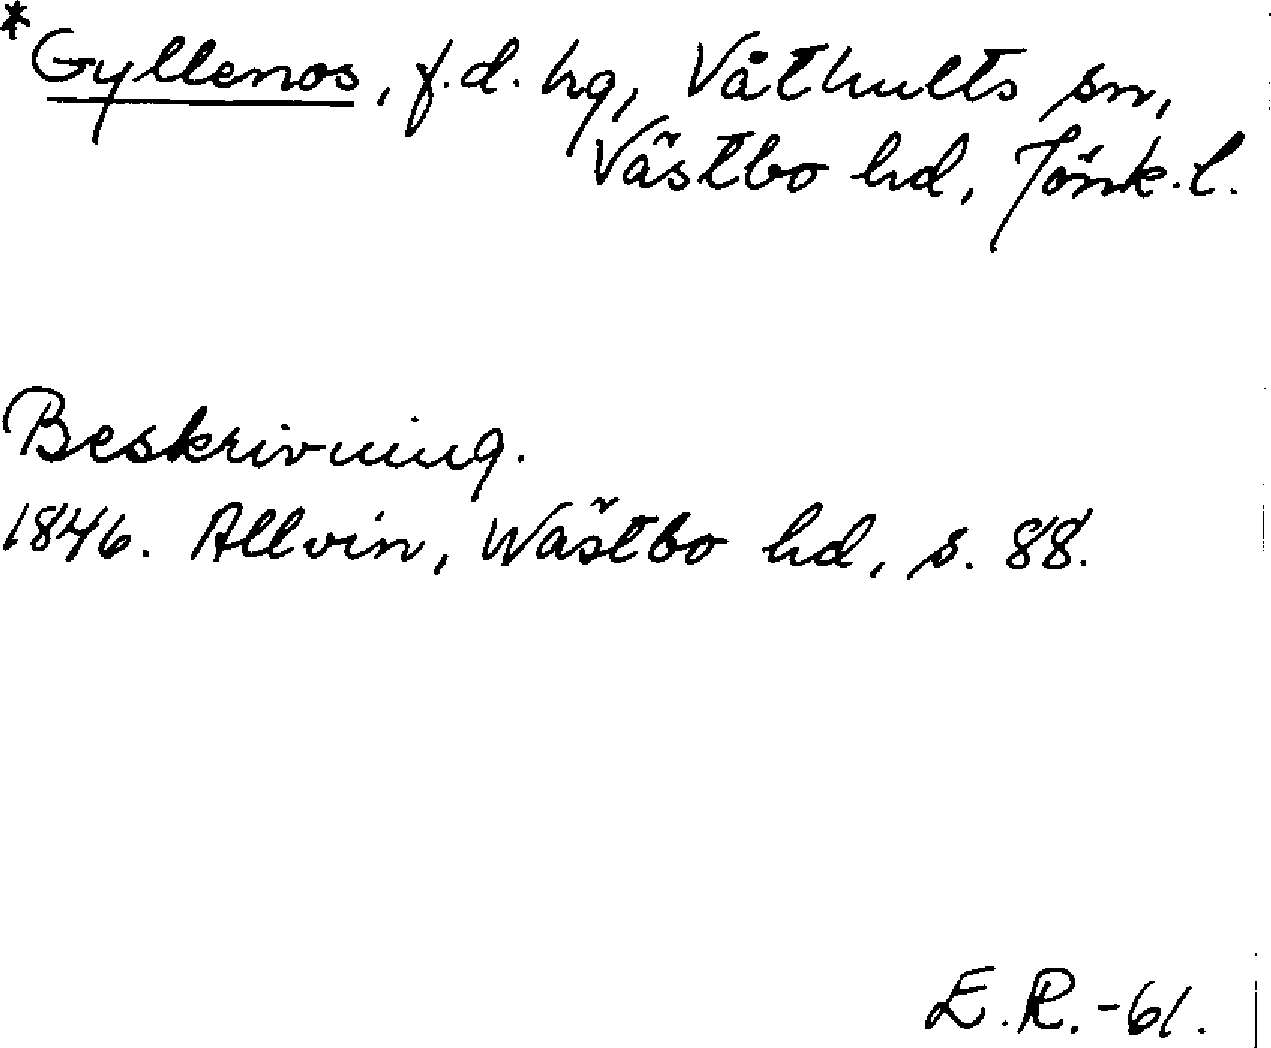 *Gyllenos, f.d. hg, Våthults sn,
Västbo hd, Jönk. l.
Beskrivning.
1846. Allvin, Wästbo hd, s. 88.
E.R.-61.